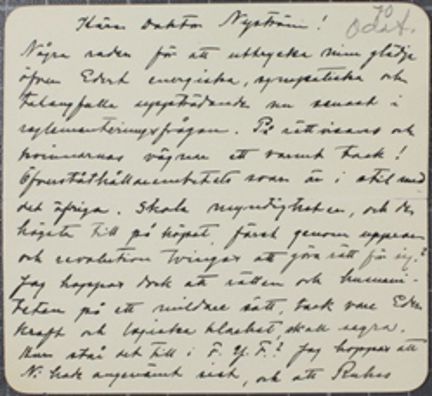 70
Odat.
Käre Doktor Nyström!
Några rader för att uttrycka min glädje
öfver Edert energiska, sympatiska och
talangfulla uppträdande nu senast i
reglementeringsfrågan. På rättvisans och
kvinnornas vägnar ett varmt tack!
Öfverståthållareembetets svar är i stil med
det öfriga. Skola myndigheten, och den
högsta till på köpet, först genom uppror
och revolution tvingas att göra rätt för sig?
Jag hoppas dock att rätten och humani-
teten på ett mildare sätt, tack vare Eder
kraft och logiska klarhet, skall segra.
Hur står det till i F. Y. F.? Jag hoppas att
Ni hade angenämt sist, och att